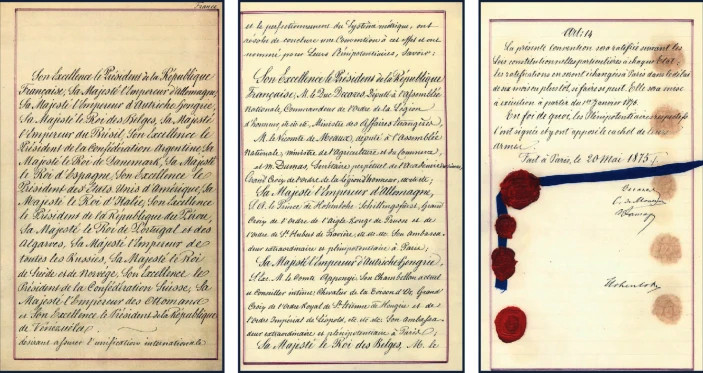 France
Son Excellence le Président de la République
Française, Sa Majesté l'Empereur d'Allemagne,
Sa Majesté l'Empereur d'Autriche-Hongrie,
Sa Majesté le Roi des Belges, Sa Majesté
l'Empereur du Brésil, Son Excellence le
Président de la Confédération Argentine, Sa
Majesté le Roi de Danemark, Sa Majesté
le Roi d'Espagne, Son Excellence le
Président des Etats Unis d'Amérique, Sa
Majesté le Roi d'Italie, Son Excellence
le Président de la République du Pérou,
Sa Majesté le Roi de Portugal et des
Algarves, Sa Majesté l'Empereur de
toutes les Russies, Sa Majesté le Roi
de Suède et de Norvège, Son Excellence le
Président de la Confédération Suisse, Sa
Majesté l'Empereur des Ottomans
et Son Excellence le Président de la République
de Vénézuéla,
désirant assurer l'unification internationale
et le perfectionnement du Système métrique, ont
résolu de conclure une Convention à cet effet et ont
nommé pour Leurs Plénipotentiaires, savoir:
Son Excellence le Président de la République
Française, M. le Duc Decazes, Député à l'Assemblée
Nationale, Commandeur de l'Ordre de la Légion
d'honneur, &c &c, Ministre des Affaires Etrangères,
M. le Vicomte de Meaux, député à l'Assemblée
Nationale, ministre de l'Agriculture et du Commerce,
et M. Dumas, Secrétaire perpétuel de l'Académie des Sciences,
Grand Croix de l'ordre de la Légion d'honneur, &c &c &c.
Sa Majesté l'Empereur d'Allemagne,
S. A. le Prince de Hohenlohe Schillingsfürst, Grand
Croix de l'ordre de l'Aigle Rouge de Prusse et de
l'ordre de St Hubert de Bavière, &c &c &c. Son Ambassa-
deur extraordinaire et plénipotentiaire à Paris;
Sa Majesté l'Empereur d'Autriche-Hongrie,
S. Exc. M. le Comte Apponyi, Son Chambellan actuel
et Conseiller intime, Chevalier de la Toison d'Or, Grand
Croix de l'ordre Royal de St Etienne de Hongrie et de
l'ordre Impérial de Léopold, &c &c &c. Son Ambassa-
deur extraordinaire et plénipotentiaire à Paris;
Sa Majesté le Roi des Belges, M. le
Art: 14
La présente Convention sera ratifiée suivant les
lois constitutionnelles particulières à chaque Etat;
les ratifications en seront échangées à Paris dans le délai
de six mois ou plus tôt, si faire se peut. Elle sera mise
à exécution à partir du 1er Janvier 1876.
En foi de quoi, les Plénipotentiaires respectifs
l'ont signée et y ont apposé le cachet de leurs
armes.
Fait à Paris, le 20 Mai 1875
Decazes
Hohenlohe